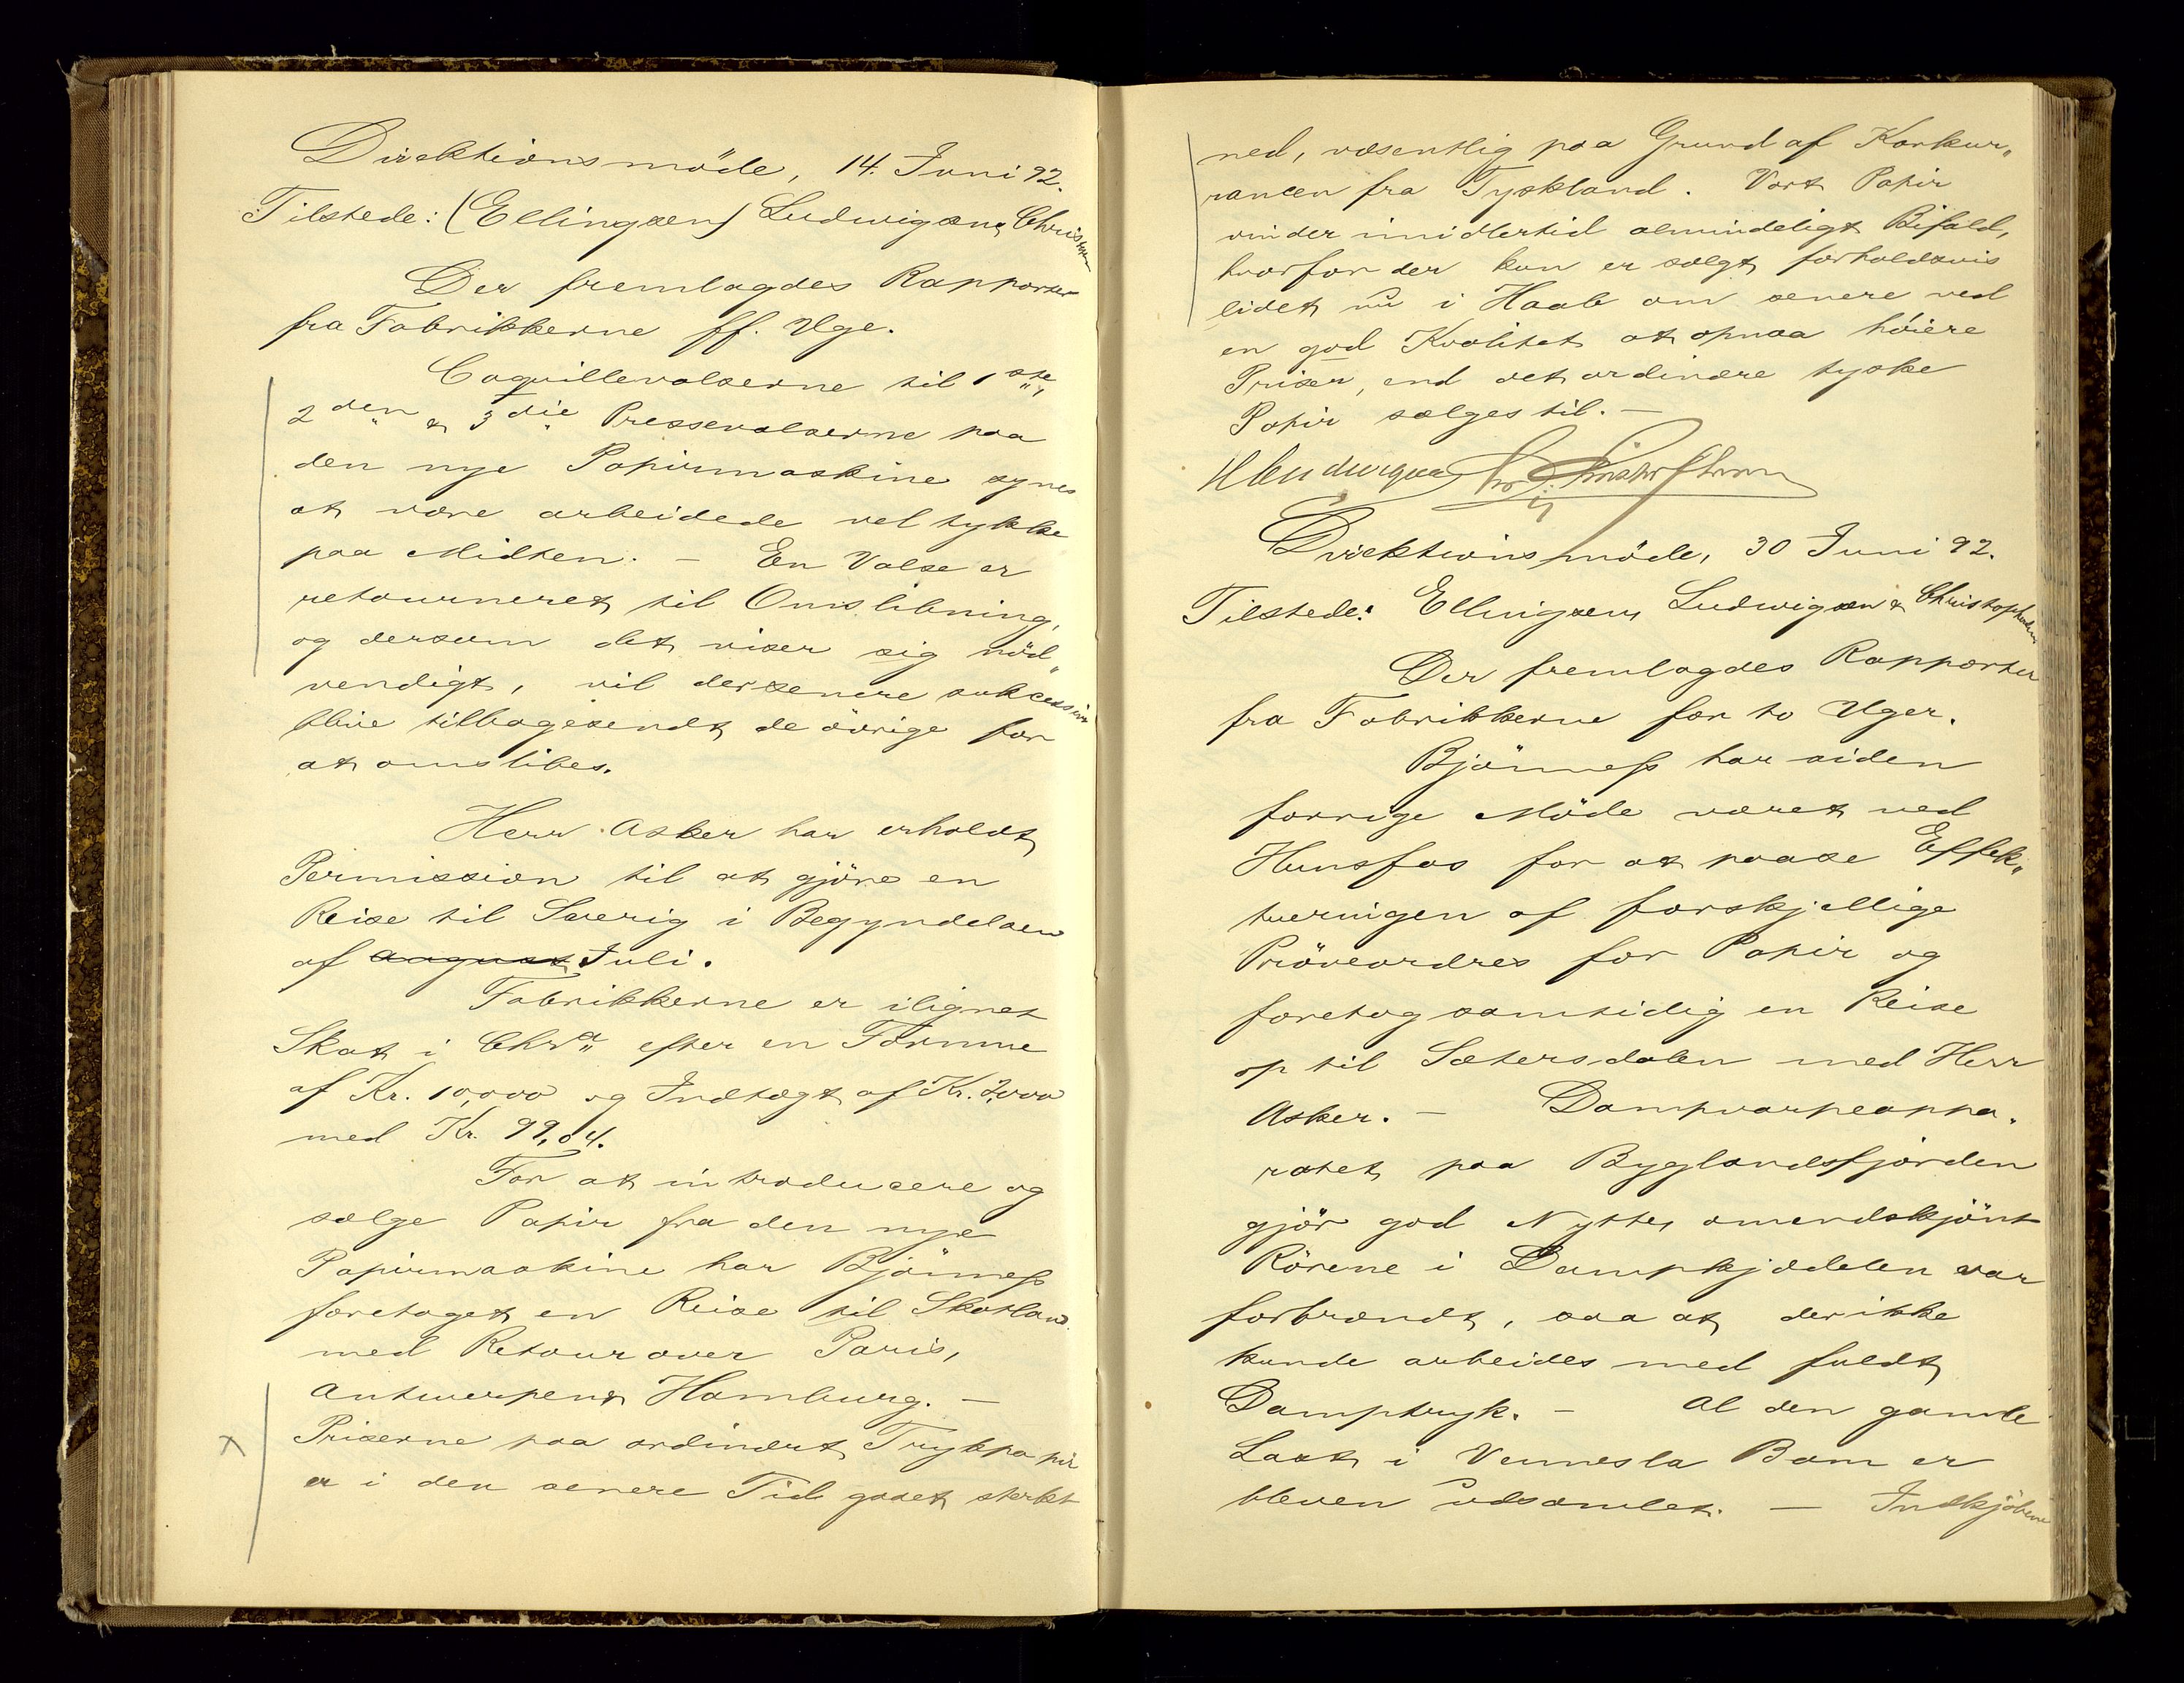 Direktionsmöde, 14. Juni 92.
Tilstede: (Ellingsen) Ludwigsen &
Der fremlagdes Rapporter
fra Fabrikkerne ff. Uge.
Coquillevalserne til 1ste,
2den & 3die Pressevalserne paa
den nye Papirmaskine synes
at være arbeidede vel tykke
paa Midten. – En Valse er
retourneret til Omslibning,
og dersom det viser sig nöd„
vendigt, vil der senere succesive
blive tilbagesendt de övrige for
at omslibes.
Herr Asker har erholdt
Permission til at gjöre en
Reise til Sverig i Begyndelsen
af August Juli.
Fabrikkerne er ilignet
Skat i Chra efter en Formue
af Kr. 10,000 og Indtægt af Kr. 2,000
med Kr. 99,04.
For at introducere og
sælge Papir fra den nye
Papirmaskine har Bjönness
foretaget en Reise til Skotland
med Retour over Paris,
Antwerpen & Hamburg. –
Priserne paa ordinært Trykpapir
er i den senere Tid gaaet sterkt
ned, væsentlig paa Grund af Konkur„
rancen fra Tyskland. Vort Papir
vinder imidlertid almindeligt Bifald,
hvorfor der kun er solgt forholdsvis
lidet nu i Haab om senere ved
en god Kvalitet at opnaa höiere
Priser, end det ordinære tyske
Papir sælges til. –
Direktionsmöde, 30 Juni 92.
Tilstede: Ellingsen, Ludwigsen & Christophersen
Der fremlagdes Rapporter
fra Fabrikkerne for to Uger.
Bjönness har siden
forrige Möde været ved
Hunsfos for at paase Effek„
tueringen af forskjellige
Pröveordres for Papir og
foretog samtidig en Reise
op til Sætersdalen med Herr
Asker. – Dampvarpeappa„
ratet paa Byglandsfjorden
gjör god Nytte, omendskjönt
Rörene i Dampkjedelen var
forbrændt, saa at der ikke
kunde arbeides med fuldt
Damptryk. – Al den gamle
Last i Vennesla Bom er
bleven udsamlet. – Indkjöbene